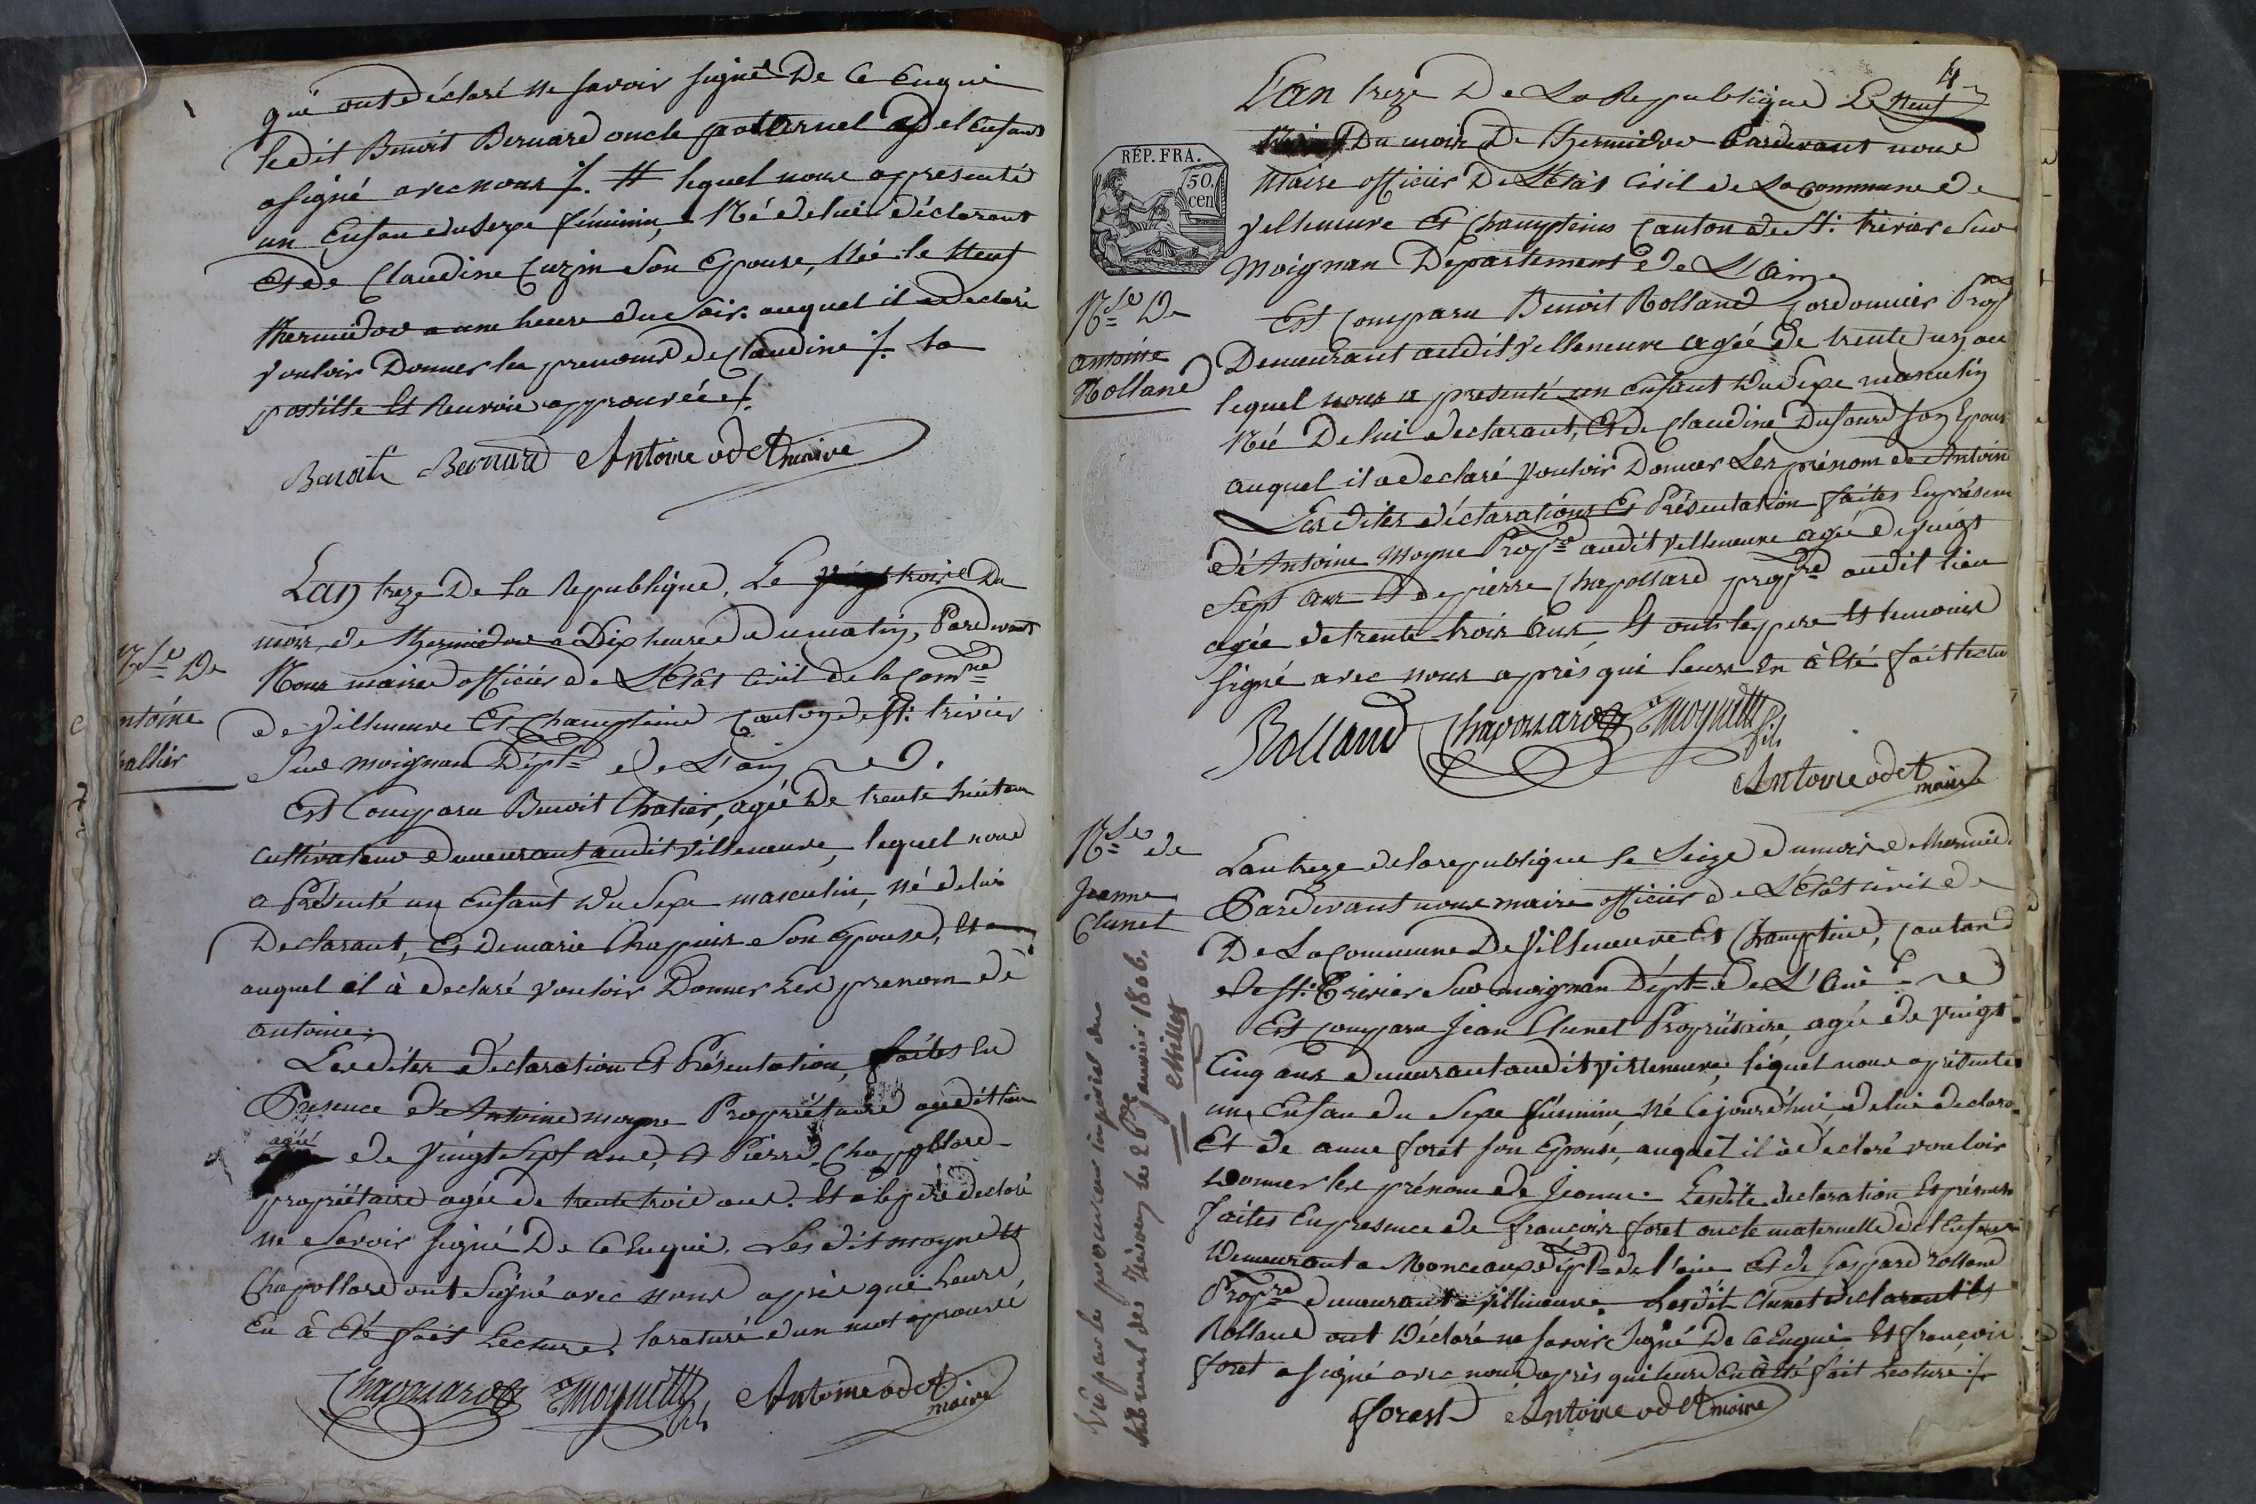 qui ont déclaré ne savoir signé De Ce Enqui
ledit Benoit Bernard oncle paternel del Enfant
a signé avec nous /. # lequel nous a presenté
un Enfan du sexe féminin, Né de lui déclarant
Et de Claudine Cuzin Son Epouse, Née le Neuf
thermidor a une heure du Soir. auquel il a declaré
vouloir Donner les prenoms de Claudine /. la
postille Et Renvoie approuvée /.
Benoit Bernard Antoine odet maire
Lan treze De la Republique, Le trois Du
mois de thermidor a Dix heures du matin, Pardevant
Nous maire officier de L'Etat Civil de la Comne
de Villeneuve Et Champteins Canton de St. trivier
Sur moignan Dépt de L'ain
Nce De
ntoine
hallier
Est Comparu Benoit Chatier, agée De trente huit ans
cultivateur demeurant audit Villeneuve, lequel nous
a Présenté un Enfant du Sexe masculin, Né de lui
Declarant, Et de marie Chapuis Son Epouse,
auquel il à declaré vouloir Donner Les prenom de
antoine.
Lesdites déclaration Et Présentation, faites En
Présence de Antoine moyne Propriétaire audit lieu
agée de vingt Sept ans, Et Pierre Chapollard
propriétaire agée de trente trois ans. Et a le père declaré
ne Savoir signé De Ce Enqui. Lesdit moyne Et
Chapollard ont Signé avec nous après qui Leurs
En à Eté fait Lecture, la raturé d'un mot aprouvé
Chapollard moyne fils Antoine odet maire
4
L'an treze De La Republique Le Neuf
Du mois De thermidor Pardevant nous
REP. FRA.
50.
cen
Maire officier De L'Etat Civil de La Commune de
Villeneuve Et Champteins Canton de St. trivier Sur
Moignan Departement de L'Ain
Nce De
antoine
Rolland
Est Comparu Benoit Rolland Cordonnier
Demeurant audit Villeneuve agée de trente un an
lequel nous a presenté un enfant du Sexe masculin
Né De lui declarant, Et De Claudine Dufour son Epous
auquel il a declaré vouloir Donner Les prénom de Antoin
Les dites déclarations Et Présentation faites En présen
d'Antoine Moyne Propre audit Villeneuve agée de vingt
Sept ans Et de pierre Chapollard propre audit lieu
agée de trente trois ans Et ont le pere Et temoins
signé avec nous après qui leurs En à Eté fait lectu
Rolland Chapollard moyne fils
Antoine odet maire
Nce de
Jeanne
Clunet
Lan treze de la republique le Seize du mois de thermid
Pardevant nous maire officier de L'Etat Civil de
De La Commune De Villeneuve Et Champteins, Canton
de St. Trivier Sur moignan Dépt de L'Ain
Est Comparu Jean Clunet Propriétaire, agée de vingt
Cinq ans demeurant audit villeneuve, lequel nous a présenté
un Enfan du Sexe féminin Né Ce jourd'hui de lui declara
Et de anne foret son Epouse, auquel il à déclaré vouloir
donner les prénom de Jeanne. Lesdite declaration Et présent
faites En presence de françois foret oncle maternelle de l'Enfan
Demeurant a Monceaux dept de l'ain Et de Gaspard Rolland
Propre demeurant a Villeneuve. Lesdit Clunet declarant Et
Rolland ont Déclaré ne savoir Signé De Ce Enqui Et françois
foret a signé avec nous après qui leurs En à Eté fait Lecture /.
fforest Antoine odet maire
Vu par le procureur impérial du
tribunal de Trévoux le 26 janvier 1806.